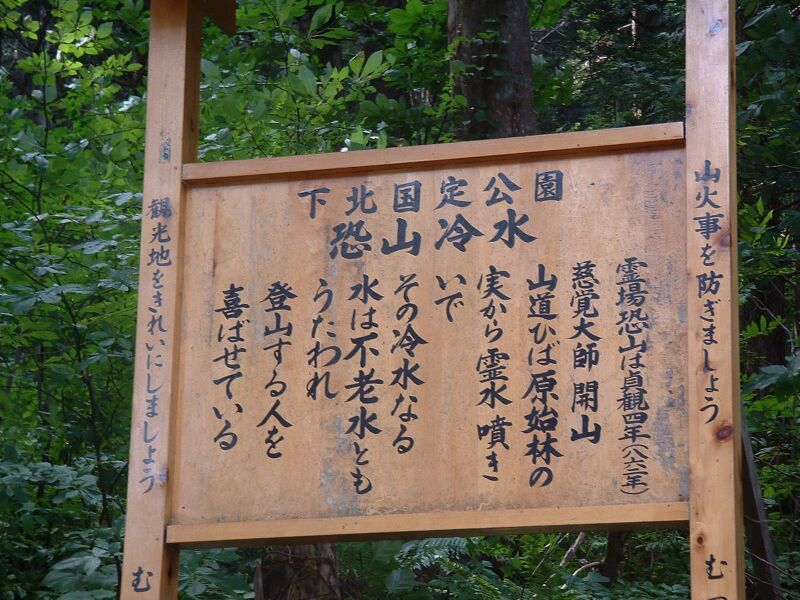 下北国定公園
恐山冷水
霊場恐山は貞観四年(八六二年)
慈覚大師 開山
山道ひば原始林の
実から霊水 噴き
いで
その冷水なる
水は不老水とも
うたわれ
登山する人を
喜ばせている
山火事を防ぎましょう
む
観光地をきれいにしましょう
む